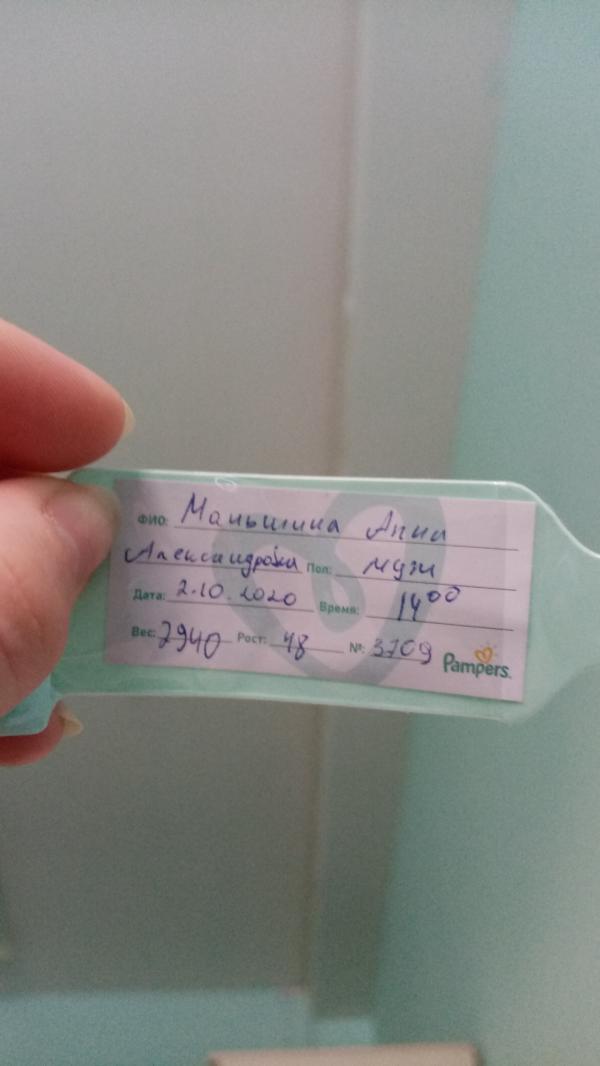 ФИО: Маньшина Анна
Александровна Пол: муж
Дата: 2.10.2020 Время: 14 00
Вес: 2940 Рост: 48 №: 3709
Pampers